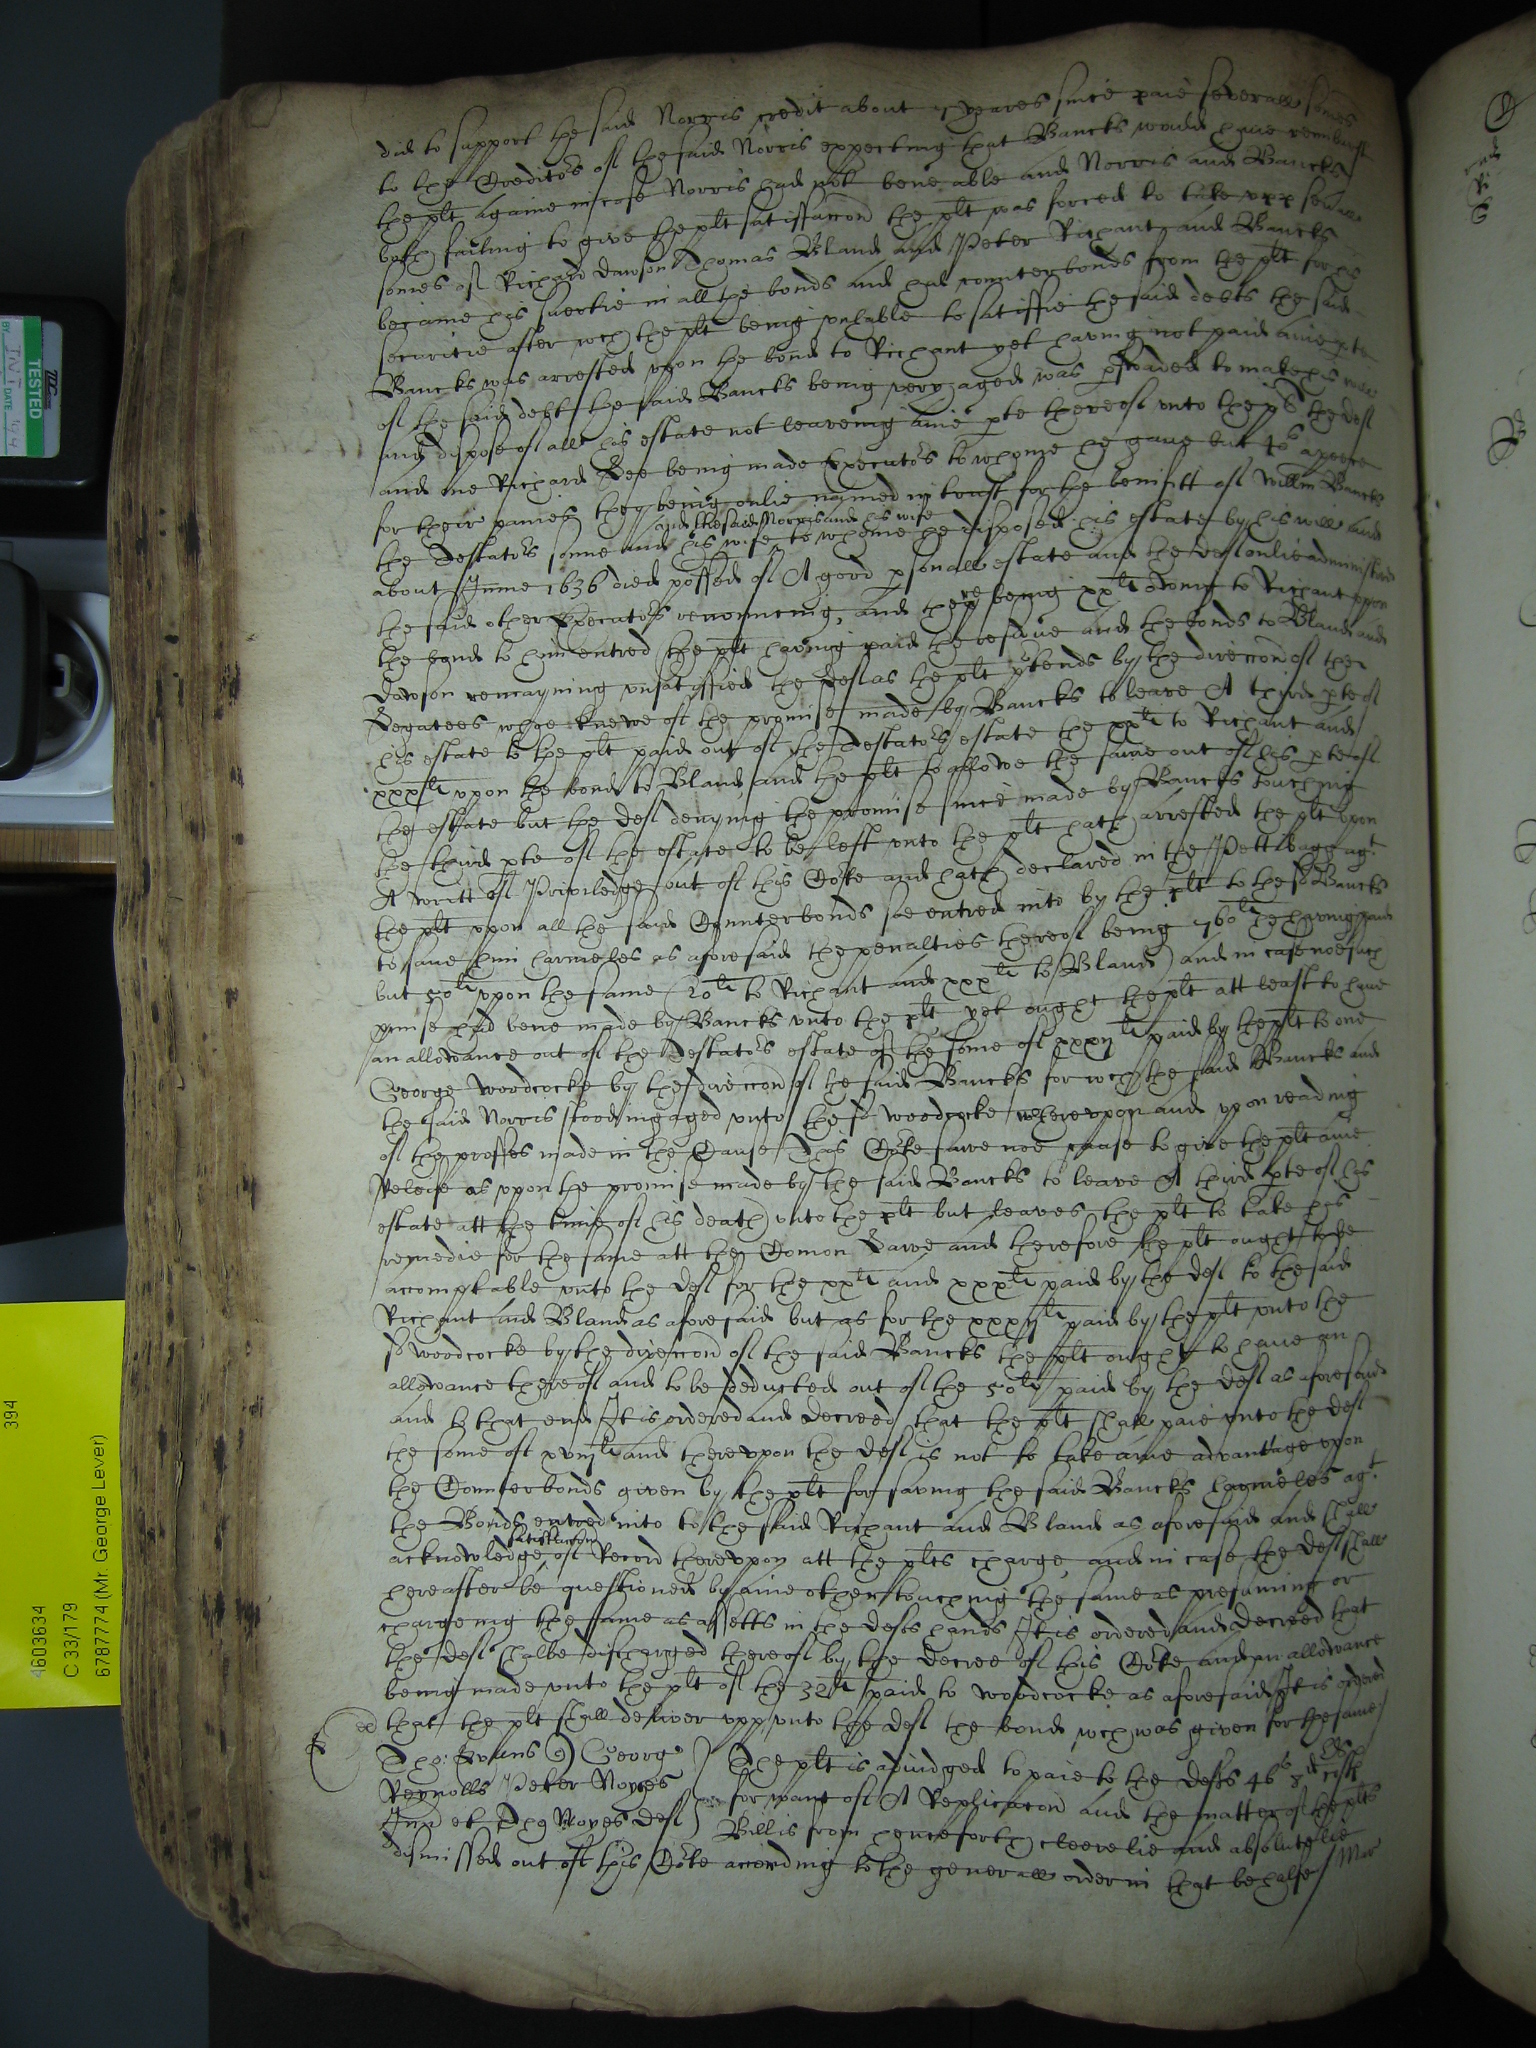 did to support the said Norris credit about 7 yeares since paie severall somes
to the Creditors of the said Norris expecting that Bancks would have reimburst
the plt againe in case Norris had not bene able and Norris and Bancks
both failing to give the plt satisfaccon the plt was forced to take upp severall
somes of Richard Dawson Thomas Bland and Peter Richant and Bancks
became his suertie in all the bonds and had counterbonds from the plt for his
securitie after wch the plt being unhable to satisfie the said debts the said
Bancks was arrested upon the bond to Richant yet having not paid anie pte
of the said debt the said Bancks being very aged was pswaded to make his will
and dispose of all his estate not leaveing anie pte thereof unto the plt the deft
and one Richard Lee being made Executors to whome he gave but 40s apeece
for their paines they being onlie named in trust for the benifitt of Willm Bancks
the Testators sonne and his wife and the said Norris and his wife to whome he disposed his estate by his will and
about June 1636 died possed of A good psonall estate and the deft onlie administred
the said other Executors renouncing, and there being xxli owing to Richant upon
the bond to him entred the plt having paid the residue and the bonds to Bland and
Dawson remayning unsatisfied the deft as the plt ptends by the direccon of the
Legatees whoe knewe of the promise made by Bancks to leave A third pte of
his estate to the plt paid out of the Testators estate the xxli to Richant and
xxxli upon the bond to Bland and the plt to allowe the same out of his pte of
the estate but the deft denying the promise since made by Bancks touching
the third pte of the estate to be left unto the plt hath arrested the plt upon
A writt of Priviledge out of this Cote and hath declared in the Pettibagg agt
the plt upon all the said Counterbonds soe entred into by the plt to the sd Bancks
to save him harmeles as aforesaid the penalties thereof being 760li he having paid
but 50li upon the same (20li to Richant and xxxli to Bland) and in case noe such
pmise had bene made by Bancks unto the plt yet ought the plt att least to have
an allowance out of the Testators estate of the some of xxxijli paid by the plt to one
George Woodcocke by the direccon of the said Bancks for wch the said Bancks and
the said Norris stood ingaged unto the sd Woodcocke whereupon and upon reading
of the proffes made in the Cause This Cote sawe noe cause to give the plt anie
Releife as upon the promise made by the said Bancks to leave A third pte of his
estate att the time of his death unto the plt but leaves the plt to take his
remedie for the same att the Comon Lawe and therefore the plt ought to be
accomptable unto the deft for the xxli and xxxli paid by the deft to the said
Richant and Bland as aforesaid but as for the xxxijli paid by the plt unto the
sd Woodcocke by the direccon of the said Bancks the plt ought to have an
allowance thereof and to be deducted out of the 50li paid by the deft as aforesaid
and to that end It is ordered and decreed that the plt shall paie unto the deft
the some of xviijli and thereupon the deft is not to take anie advantage upon
the Counterbonds given by the plt for saving the said Bancks harmeles agt
the Bonds entred into to the said Richant and Bland as aforesaid and shall
acknowledge satisfaccon of Record thereupon att the plts charge, and in case the deft shall
hereafter be questioned by anie other touching the same as presuming or
chargeing the same as assetts in the defts hands It is ordered and decreed that
the deft shalbe discharged thereof by the decree of this Cote and an allowance
being made unto the plt of the 32li paid to Woodcocke as aforesaid It is ordered
that the plt shall deliver upp unto the deft the bond wch was given for the same
Tho: Evans George
Reynolls Peter Noyes
Junr et Tho Noyes deft
The plt is adiudged to paie to the defts 46s 8d costs
for want of A Replicacon and the matter of the plts
Bill is from henceforth cleerelie and absolutelie
dismissed out of this Cote according to the generall order in that behalfe
TESTED
DATE
394
4603634
C 33/179
6787774 (Mr. George Lever)